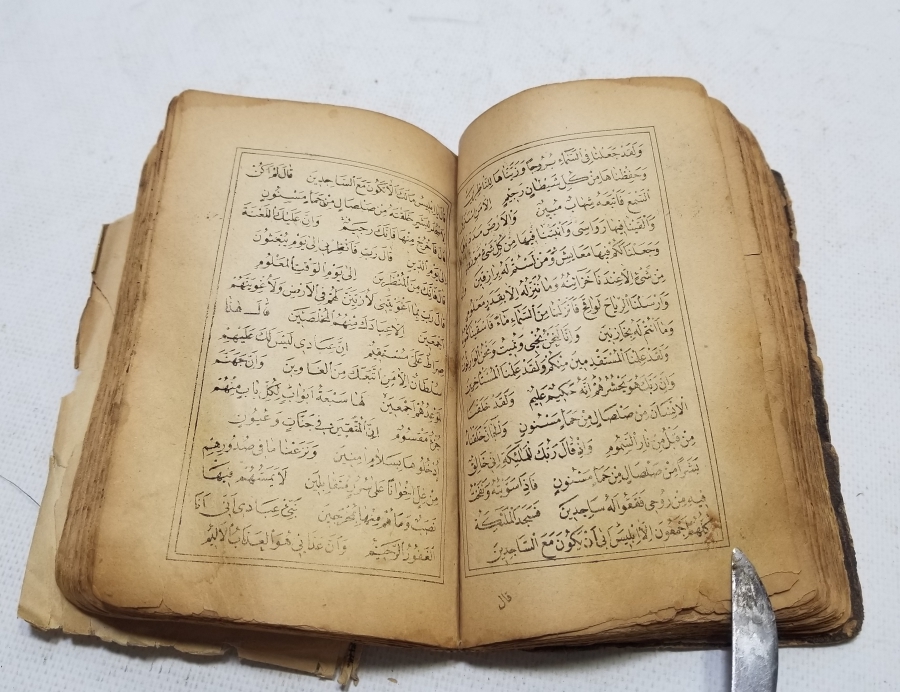 وَلَقَدْ جَعَلْنَا فِى السَّمَاءِ بُرُوجًا وَزَيَّنَّاهَا لِلنَّاظِرِينَ
وَحَفِظْنَاهَا مِنْ كُلِّ شَيْطَانٍ رَجِيمٍ اِلَّا مَنِ
السَّمْعَ فَاَتْبَعَهُ شِهَابٌ مُبِينٌ وَالْاَرْضَ
وَاَلْقَيْنَا فِيهَا رَوَاسِىَ وَاَنْبَتْنَا فِيهَا مِنْ كُلِّ شَىْءٍ مَوْزُونٍ
وَجَعَلْنَا لَكُمْ فِيهَا مَعَايِشَ وَمَنْ لَسْتُمْ لَهُ بِرَازِقِينَ
مِنْ شَىْءٍ اِلَّا عِنْدَنَا خَزَائِنُهُ وَمَا نُنَزِّلُهُ اِلَّا بِقَدَرٍ مَعْلُومٍ
وَاَرْسَلْنَا الرِّيَاحَ لَوَاقِحَ فَاَنْزَلْنَا مِنَ السَّمَاءِ مَاءً فَاَسْقَيْنَاكُمُوهُ
وَمَا اَنْتُمْ لَهُ بِخَازِنِينَ وَاِنَّا لَنَحْنُ نُحْيِى وَنُمِيتُ وَنَحْنُ الْوَارِثُونَ
وَلَقَدْ عَلِمْنَا الْمُسْتَقْدِمِينَ مِنْكُمْ وَلَقَدْ عَلِمْنَا الْمُسْتَاْخِرِينَ
وَاِنَّ رَبَّكَ هُوَ يَحْشُرُهُمْ اِنَّهُ حَكِيمٌ عَلِيمٌ وَلَقَدْ خَلَقْنَا
الْاِنْسَانَ مِنْ صَلْصَالٍ مِنْ حَمَاٍ مَسْنُونٍ وَالْجَانَّ خَلَقْنَاهُ
مِنْ قَبْلُ مِنْ نَارِ السَّمُومِ وَاِذْ قَالَ رَبُّكَ لِلْمَلٰئِكَةِ اِنِّى خَالِقٌ
بَشَرًا مِنْ صَلْصَالٍ مِنْ حَمَاٍ مَسْنُونٍ فَاِذَا سَوَّيْتُهُ وَنَفَخْتُ
فِيهِ مِنْ رُوحِى فَقَعُوا لَهُ سَاجِدِينَ فَسَجَدَ الْمَلٰئِكَةُ
كُلُّهُمْ اَجْمَعُونَ اِلَّا اِبْلِيسَ اَبٰى اَنْ يَكُونَ مَعَ السَّاجِدِينَ
قال
قَالَ يَا اِبْلِيسُ مَالَكَ اَلَّا تَكُونَ مَعَ السَّاجِدِينَ قَالَ لَمْ اَكُنْ
لِاَسْجُدَ لِبَشَرٍ خَلَقْتَهُ مِنْ صَلْصَالٍ مِنْ حَمَاٍ مَسْنُونٍ
قَالَ فَاخْرُجْ مِنْهَا فَاِنَّكَ رَجِيمٌ وَاِنَّ عَلَيْكَ اللَّعْنَةَ
اِلٰى يَوْمِ الدِّينِ قَالَ رَبِّ فَاَنْظِرْنِى اِلٰى يَوْمِ يُبْعَثُونَ
قَالَ فَاِنَّكَ مِنَ الْمُنْظَرِينَ اِلٰى يَوْمِ الْوَقْتِ الْمَعْلُومِ
قَالَ رَبِّ بِمَا اَغْوَيْتَنِى لَاُزَيِّنَنَّ لَهُمْ فِى الْاَرْضِ وَلَاُغْوِيَنَّهُمْ
اَجْمَعِينَ اِلَّا عِبَادَكَ مِنْهُمُ الْمُخْلَصِينَ قَالَ هٰذَا
صِرَاطٌ عَلَىَّ مُسْتَقِيمٌ اِنَّ عِبَادِى لَيْسَ لَكَ عَلَيْهِمْ
سُلْطَانٌ اِلَّا مَنِ اتَّبَعَكَ مِنَ الْغَاوِينَ وَاِنَّ جَهَنَّمَ
لَمَوْعِدُهُمْ اَجْمَعِينَ لَهَا سَبْعَةُ اَبْوَابٍ لِكُلِّ بَابٍ مِنْهُمْ
جُزْءٌ مَقْسُومٌ اِنَّ الْمُتَّقِينَ فِى جَنَّاتٍ وَعُيُونٍ
اُدْخُلُوهَا بِسَلَامٍ اٰمِنِينَ وَنَزَعْنَا مَا فِى صُدُورِهِمْ
مِنْ غِلٍّ اِخْوَانًا عَلٰى سُرُرٍ مُتَقَابِلِينَ لَا يَمَسُّهُمْ فِيهَا
نَصَبٌ وَمَا هُمْ مِنْهَا بِمُخْرَجِينَ نَبِّئْ عِبَادِى اَنِّى اَنَا
الْغَفُورُ الرَّحِيمُ وَاَنَّ عَذَابِى هُوَ الْعَذَابُ الْاَلِيمُ